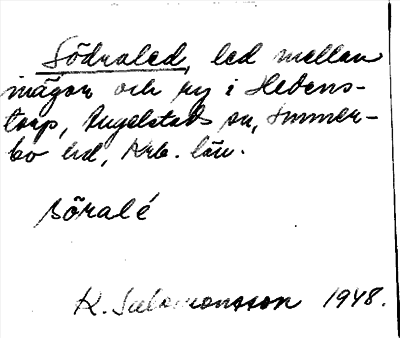 Södraled, led mellan
inägor och ny i Hedens-
torp, Angelstads sn, Sunner-
bo hd, Krb. län.
sörale´
K. Salomonsson 1948.